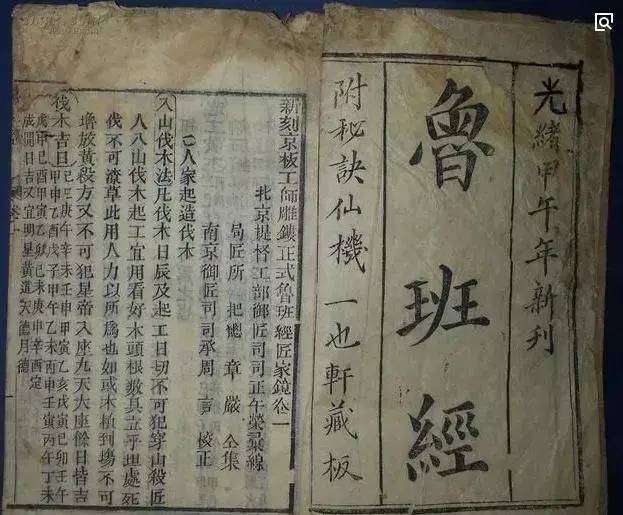 光緒甲午年新刊
魯班經
附秘訣仙機 一也軒藏板
新刻京板工師雕鏤正式魯班經匠家鏡卷一
北京提督工部御匠司司正午榮彙編
局匠所 把總 章嚴 仝集
南京御匠司司承周言 校正
人家起造伐木
入山伐木法凡伐木日辰及起工日切不可犯穿山殺匠
人入山伐木起工宜用看好木頭根數具立平坦處
伐不可潦草此用人力以所為也如或木植到塲不可
堆放黃殺方又不可犯皇帝八座九天大座餘日皆吉
伐木吉日
己巳庚午辛未壬申甲寅乙亥戊寅己卯壬午
甲申乙酉戊子甲午乙未丙申壬寅丙午丁未
戊申己酉甲寅乙卯己未庚申辛酉定
成開日吉又宜明星黃道天德月德